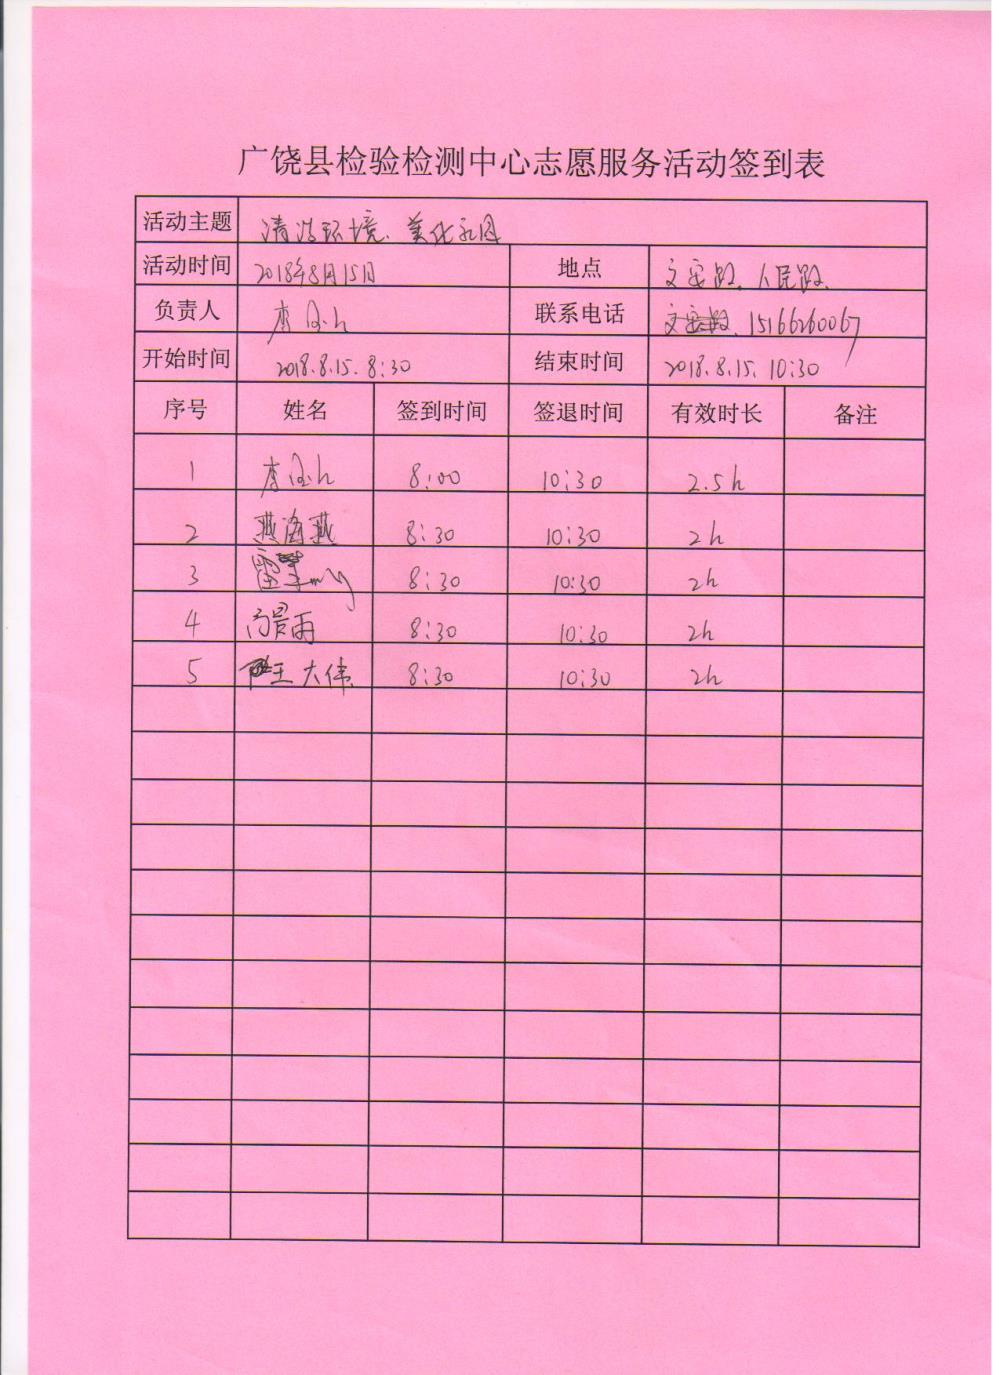 广饶县检验检测中心志愿服务活动签到表
活动主题 清洁环境、美化家园
活动时间 2018年8月15日 地点 文安路、人民路、
负责人 李 联系电话 15166260067
开始时间 2018.8.15. 8:30 结束时间 2018.8.15. 10:30
序号 姓名 签到时间 签退时间 有效时长 备注
1 李 8:00 10:30 2.5h
2 燕海燕 8:30 10:30 2h
3 雷 8:30 10:30 2h
4 高晨雨 8:30 10:30 2h
5 王大伟 8:30 10:30 2h